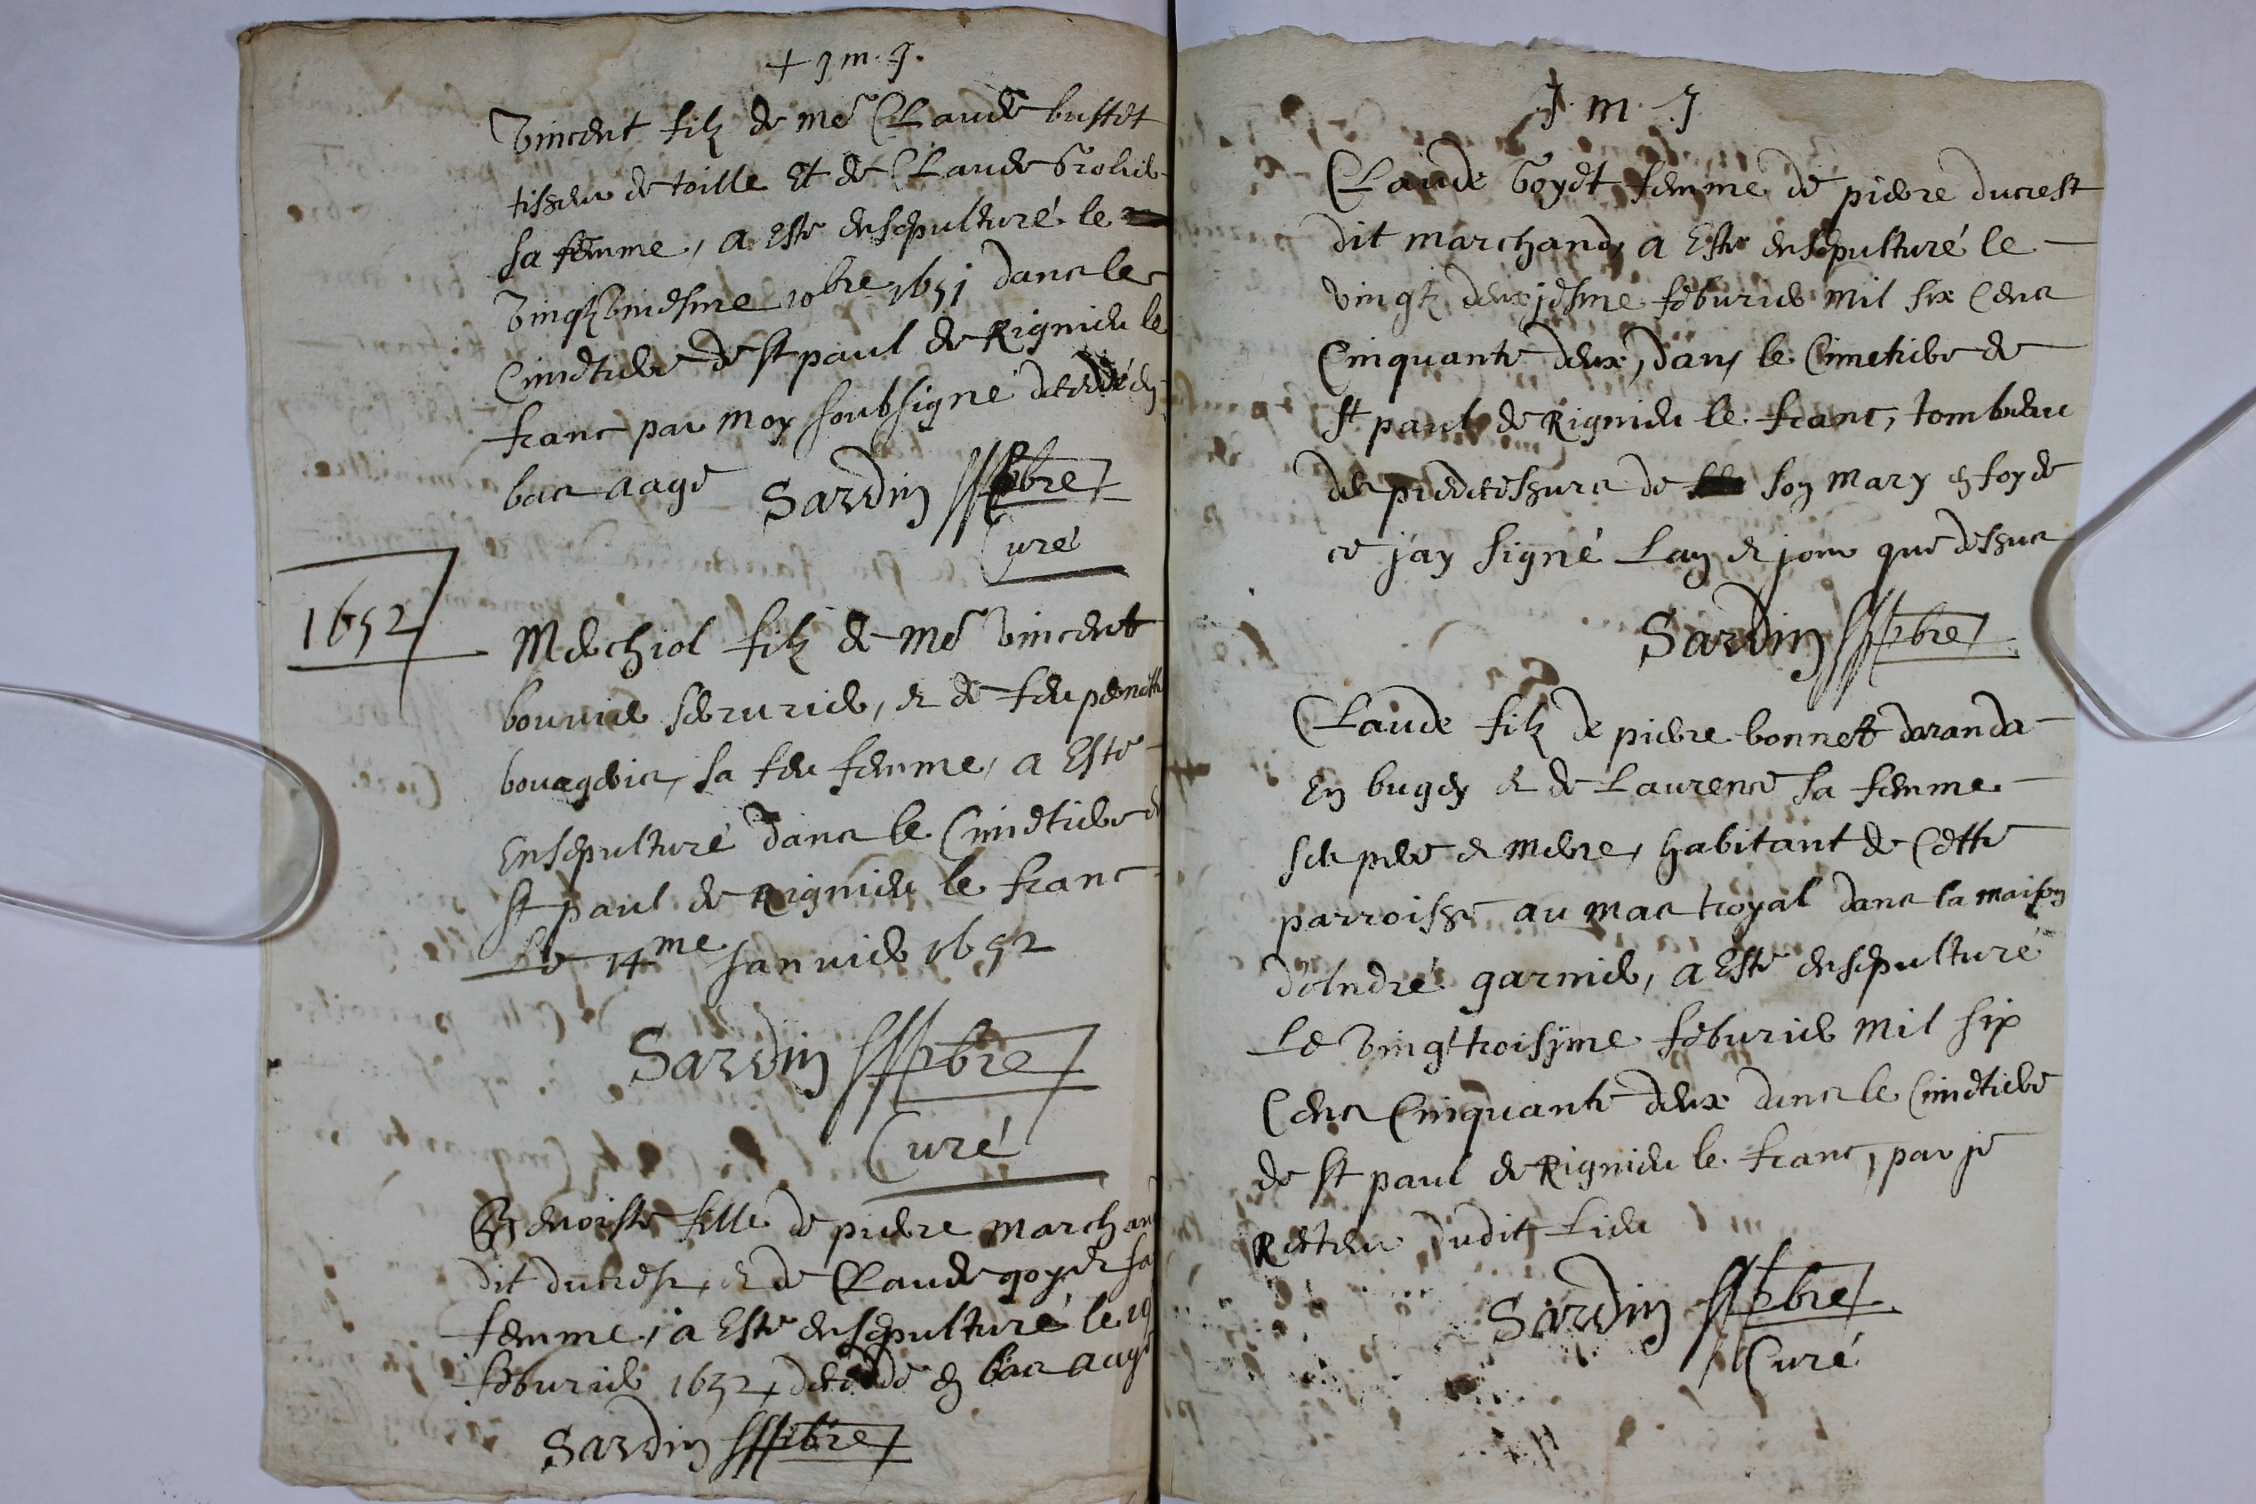 + J m. J.
Vincent filz de me Claude buffet
tisseur de toille et de Claude
sa femme, a este ensepulturé le
vingt huictiesme 10bre 1651 dans le
Cimetiere de st paul de Rignieu le
franc par moy soubsigné decedé en
bas aage Sardin pbre
Curé
1652
Melchiol filz de me Vincent
serurier, et de feu
sa feu femme, a Esté
Ensepulturé dans le Cimetiere de
st paul de Rignieu le franc
Le 14me Janvier 1652
Sardin pbre
Curé
Benoiste fille de pierre marchand
dit ducrest, et de Claude goyet sa
femme, a Esté ensepulturé le 19
feburier 1652, decedé en bas aage
Sardin pbre
J. m. J
Claude Goyet femme de pierre ducrest
dit marchand, a Esté ensepulturé le
vingt deuxjesme feburier mil six Cens
Cinquante deux, dans le Cimetiere de
st paul de Rignieu le franc, tombeau
des predecessurs de son mary en foy de
ce jay signé Lan et jour que dessus
Sardin pbre
Claude filz de pierre bonnet daranda
En bugey et de Laurence sa femme
ses pere et mere, habitant de Cette
parroisse au mas royal dans la maison
d'Andre garnier, a Esté ensepulturé
Le vingt troisjme feburier mil six
Cens Cinquante deux dans le Cimetiere
de st paul de Rignieu le franc, par je
Recteur dudit Lieu
Sardin pbre
Curé